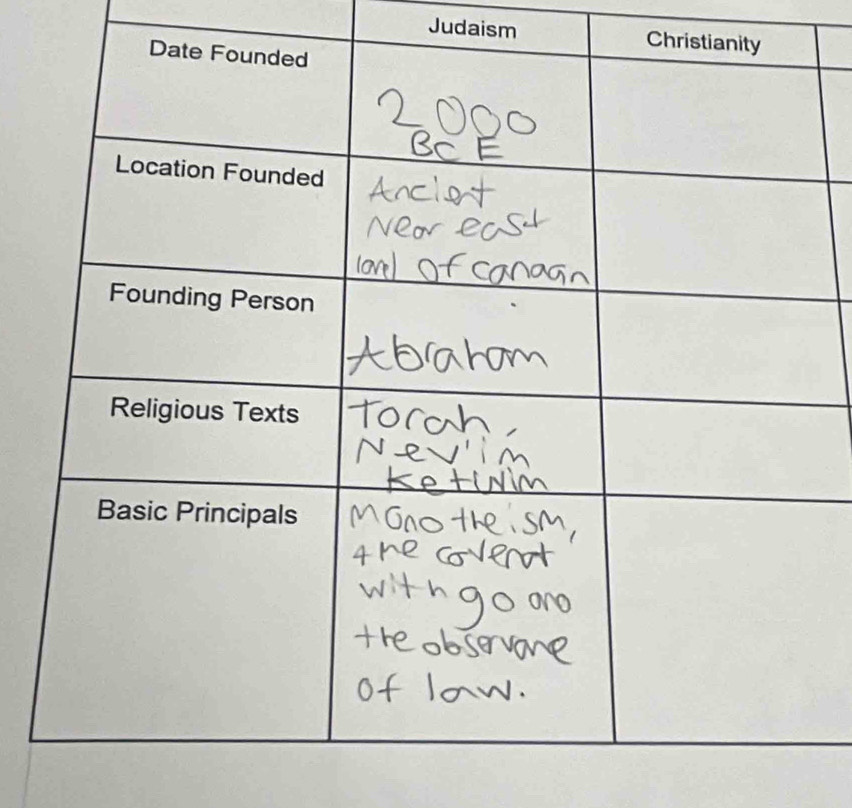 Judaism
Christianity
Date Founded
2000
BCE
Location Founded
Ancient
Near east
land of canaan
Founding Person
Abraham
Religious Texts
Torah,
Nev'im
Ketuvim
Basic Principals
Monotheism,
the covenat
with go and
the observane
of law.